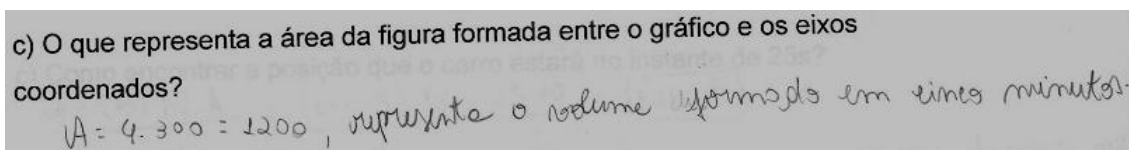 c) O que representa a área da figura formada entre o gráfico e os eixos
coordenados?
A = 4.300 = 1200, representa o volume formado em cinco minutos.